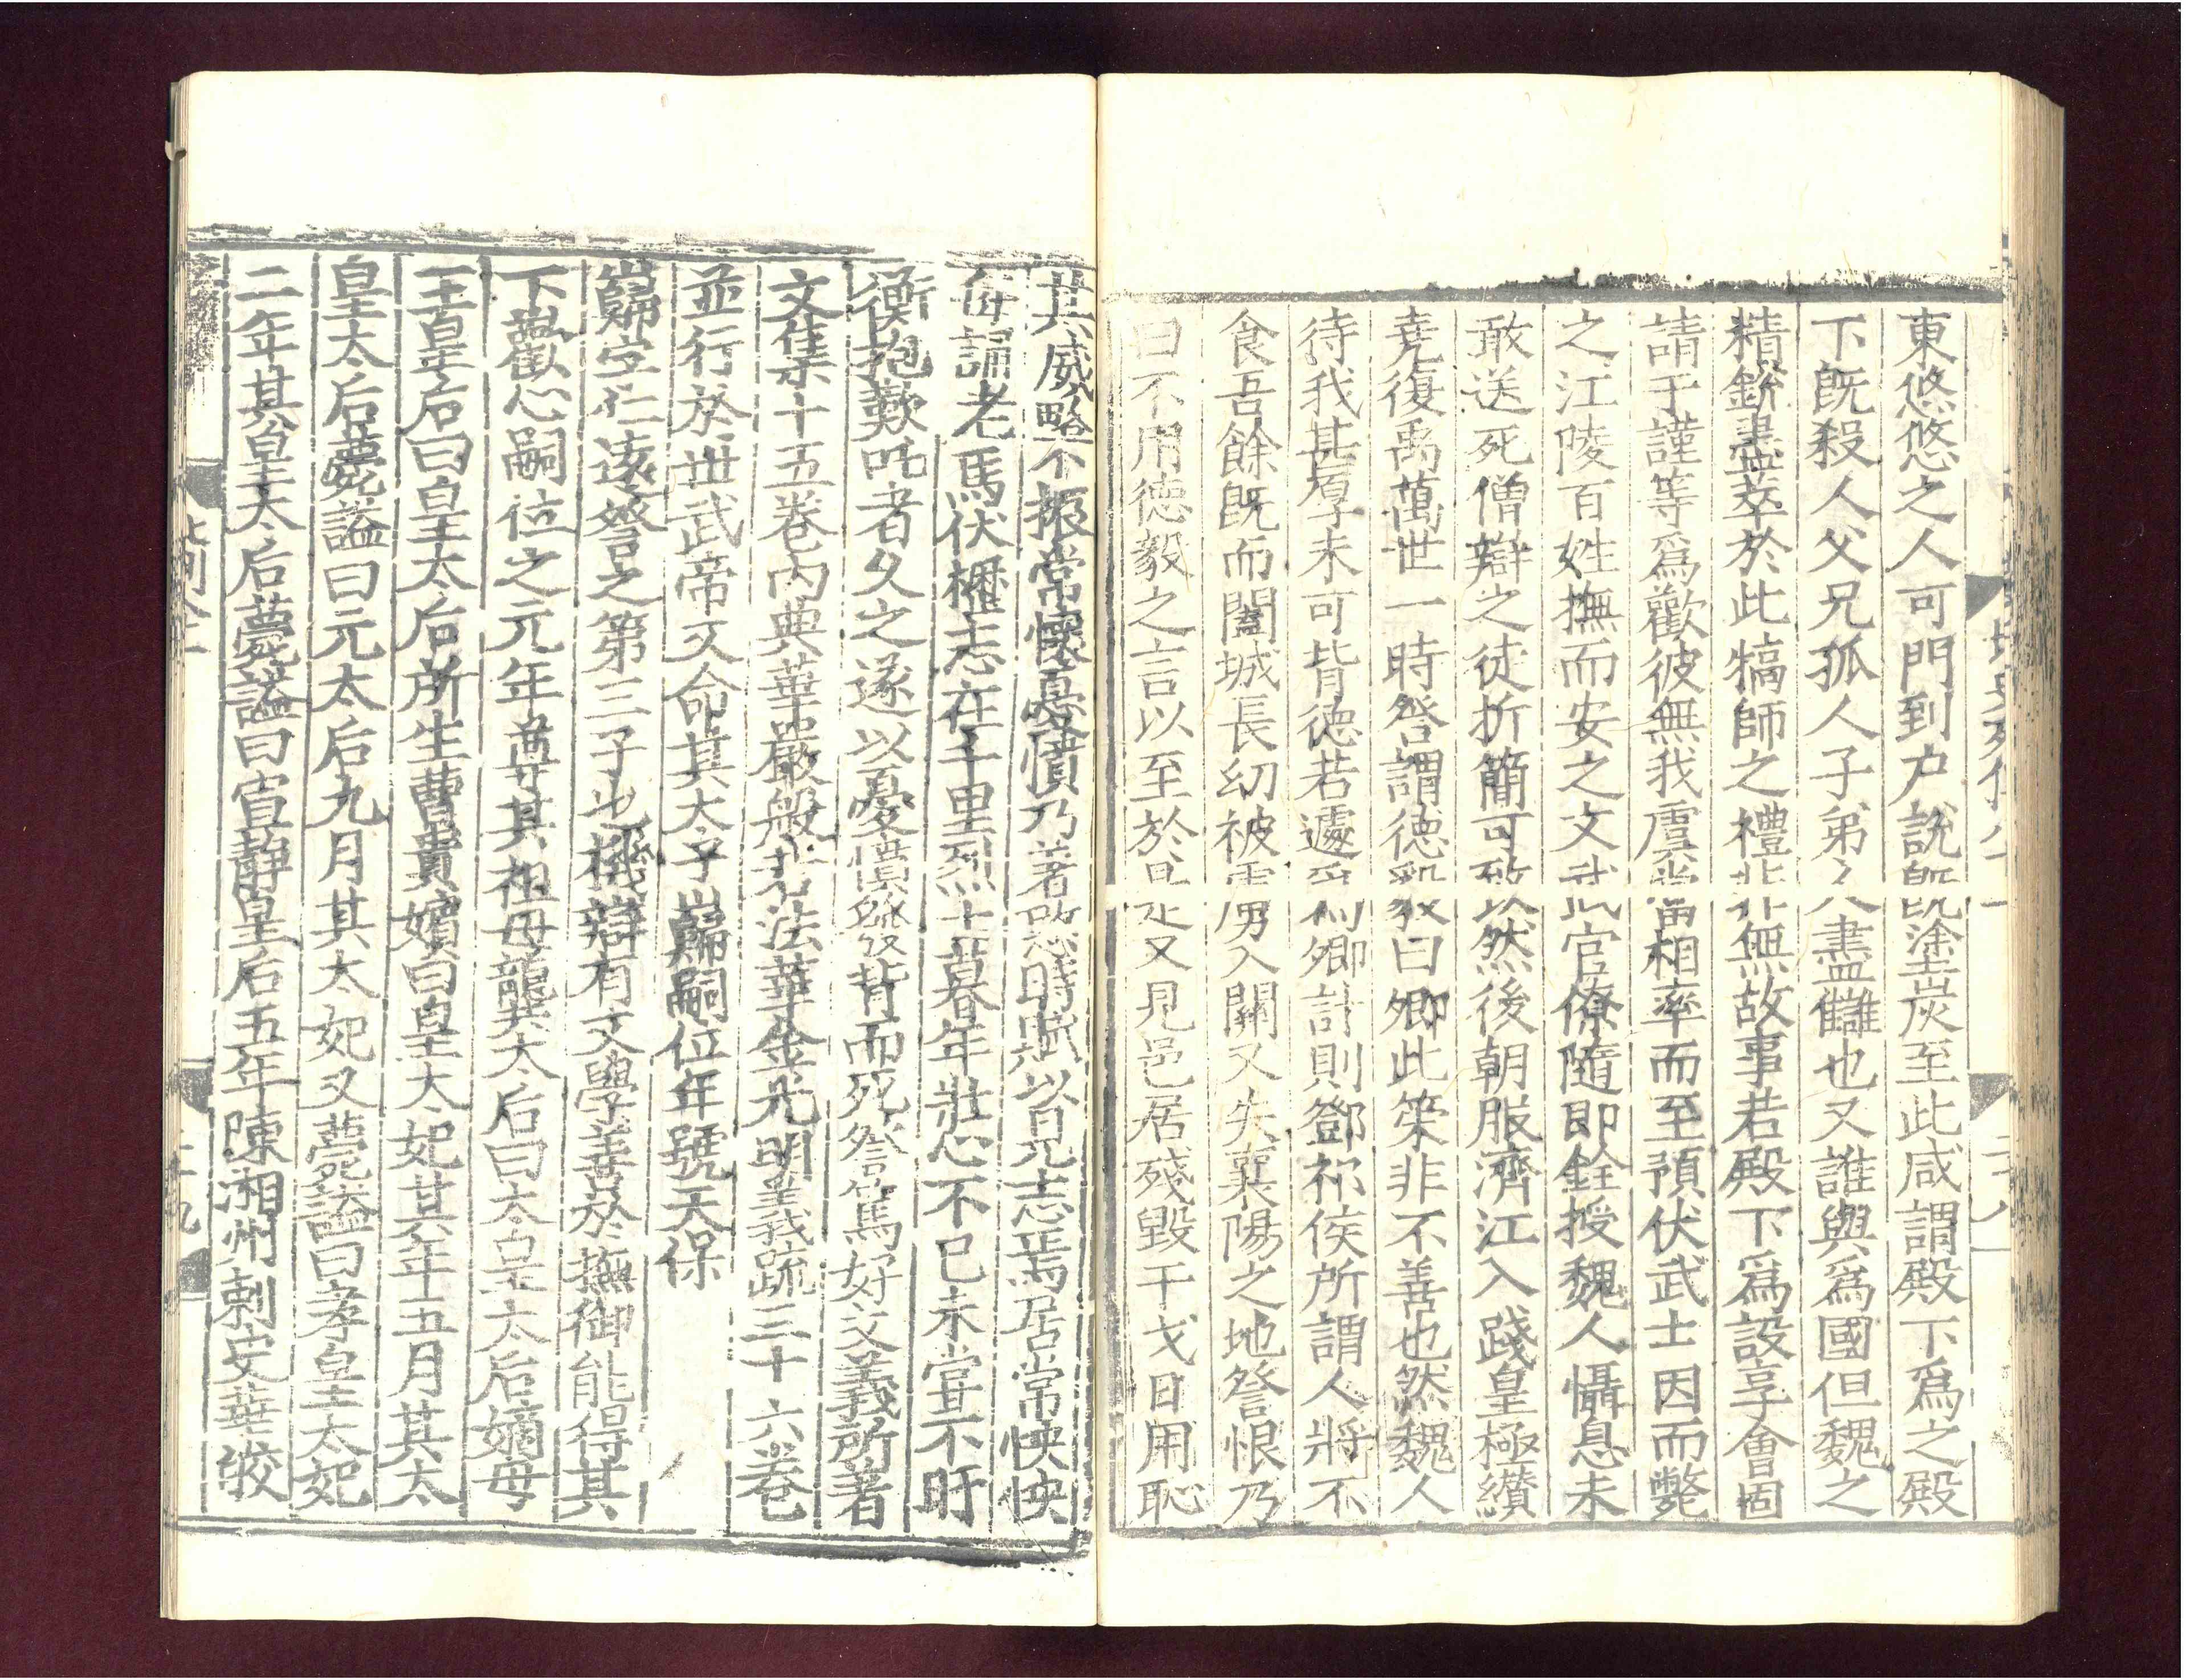 東悠悠之人可門到户説既塗炭至此咸謂殿下爲之殿
下旣殺人父兄孤人子弟人盡讎也又誰與爲國但魏之
精銳盡萃於此犒師之禮非無故事若殿下爲設享會固
請于謹等爲歡彼無我虞當相率而至預伏武士因而斃
之江陵百姓撫而安之文武官僚隨即銓授魏人懾息未
敢送死僧辯之徒折簡可致然後朝服濟江入踐皇極纉
堯復禹萬世一時詧謂德毅曰卿此策非不善也然魏人
待我甚厚未可背德若遽爲卿計則鄧祁侯所謂人將不
食吾餘旣而闔城長幼被虜入關又失襄陽之地詧恨乃
曰不用德毅之言以至於是又見邑居殘毀干戈日用恥
其威略不振常懷憂憤乃著愍時賦以見志焉居常怏怏
每誦老馬伏櫪志在千里烈士暮年壯心不已未嘗不盱
衡扼歎吒者久之遂以憂憤發背而死詧篤好文義所著
文集十五卷内典華嚴般若法華金光明義疏三十六卷
並行於世武帝又命其太子巋嗣位年號天保
巋字仁遠詧之第三子也機辯有文學善於撫御能得其
下歡心嗣位之元年尊其祖母龔太后曰太皇太后嫡母
王皇后曰皇太后所生曹貴嬪曰皇太妃其年五月其太
皇太后薨謚曰元太后九月其太妃又薨謚曰孝皇太妃
二年其皇太后薨謚曰宣静皇后五年陳湘州刺史華皎